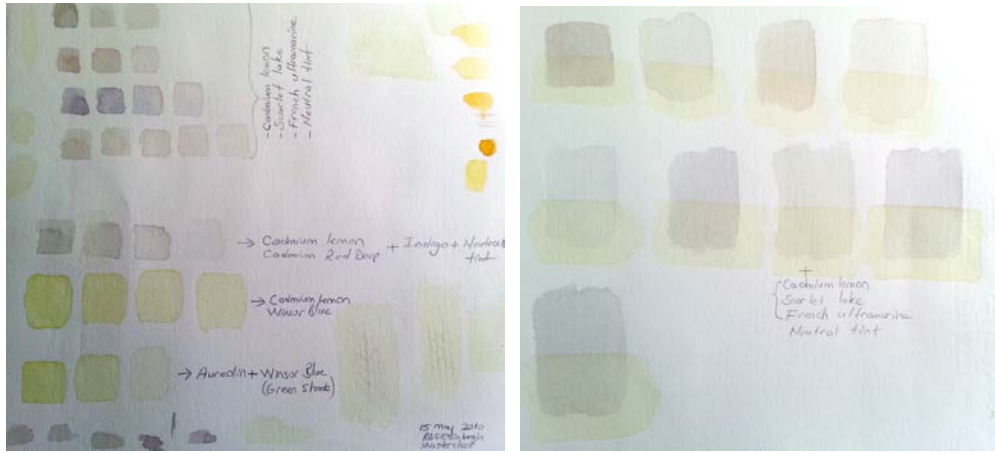 -Cadmium lemon
-Scarlet lake
-French ultramarine
-Neutral tint
→ Cadmium lemon
Cadmium Red Deep + Indigo + Neutral tint
→ Cadmium lemon
Winsor Blue
→ Aureolin + Winsor Blue
(Green Shade)
15 May 2010
Masterclass
+
Cadmium lemon
Scarlet lake
French ultramarine
Neutral tint